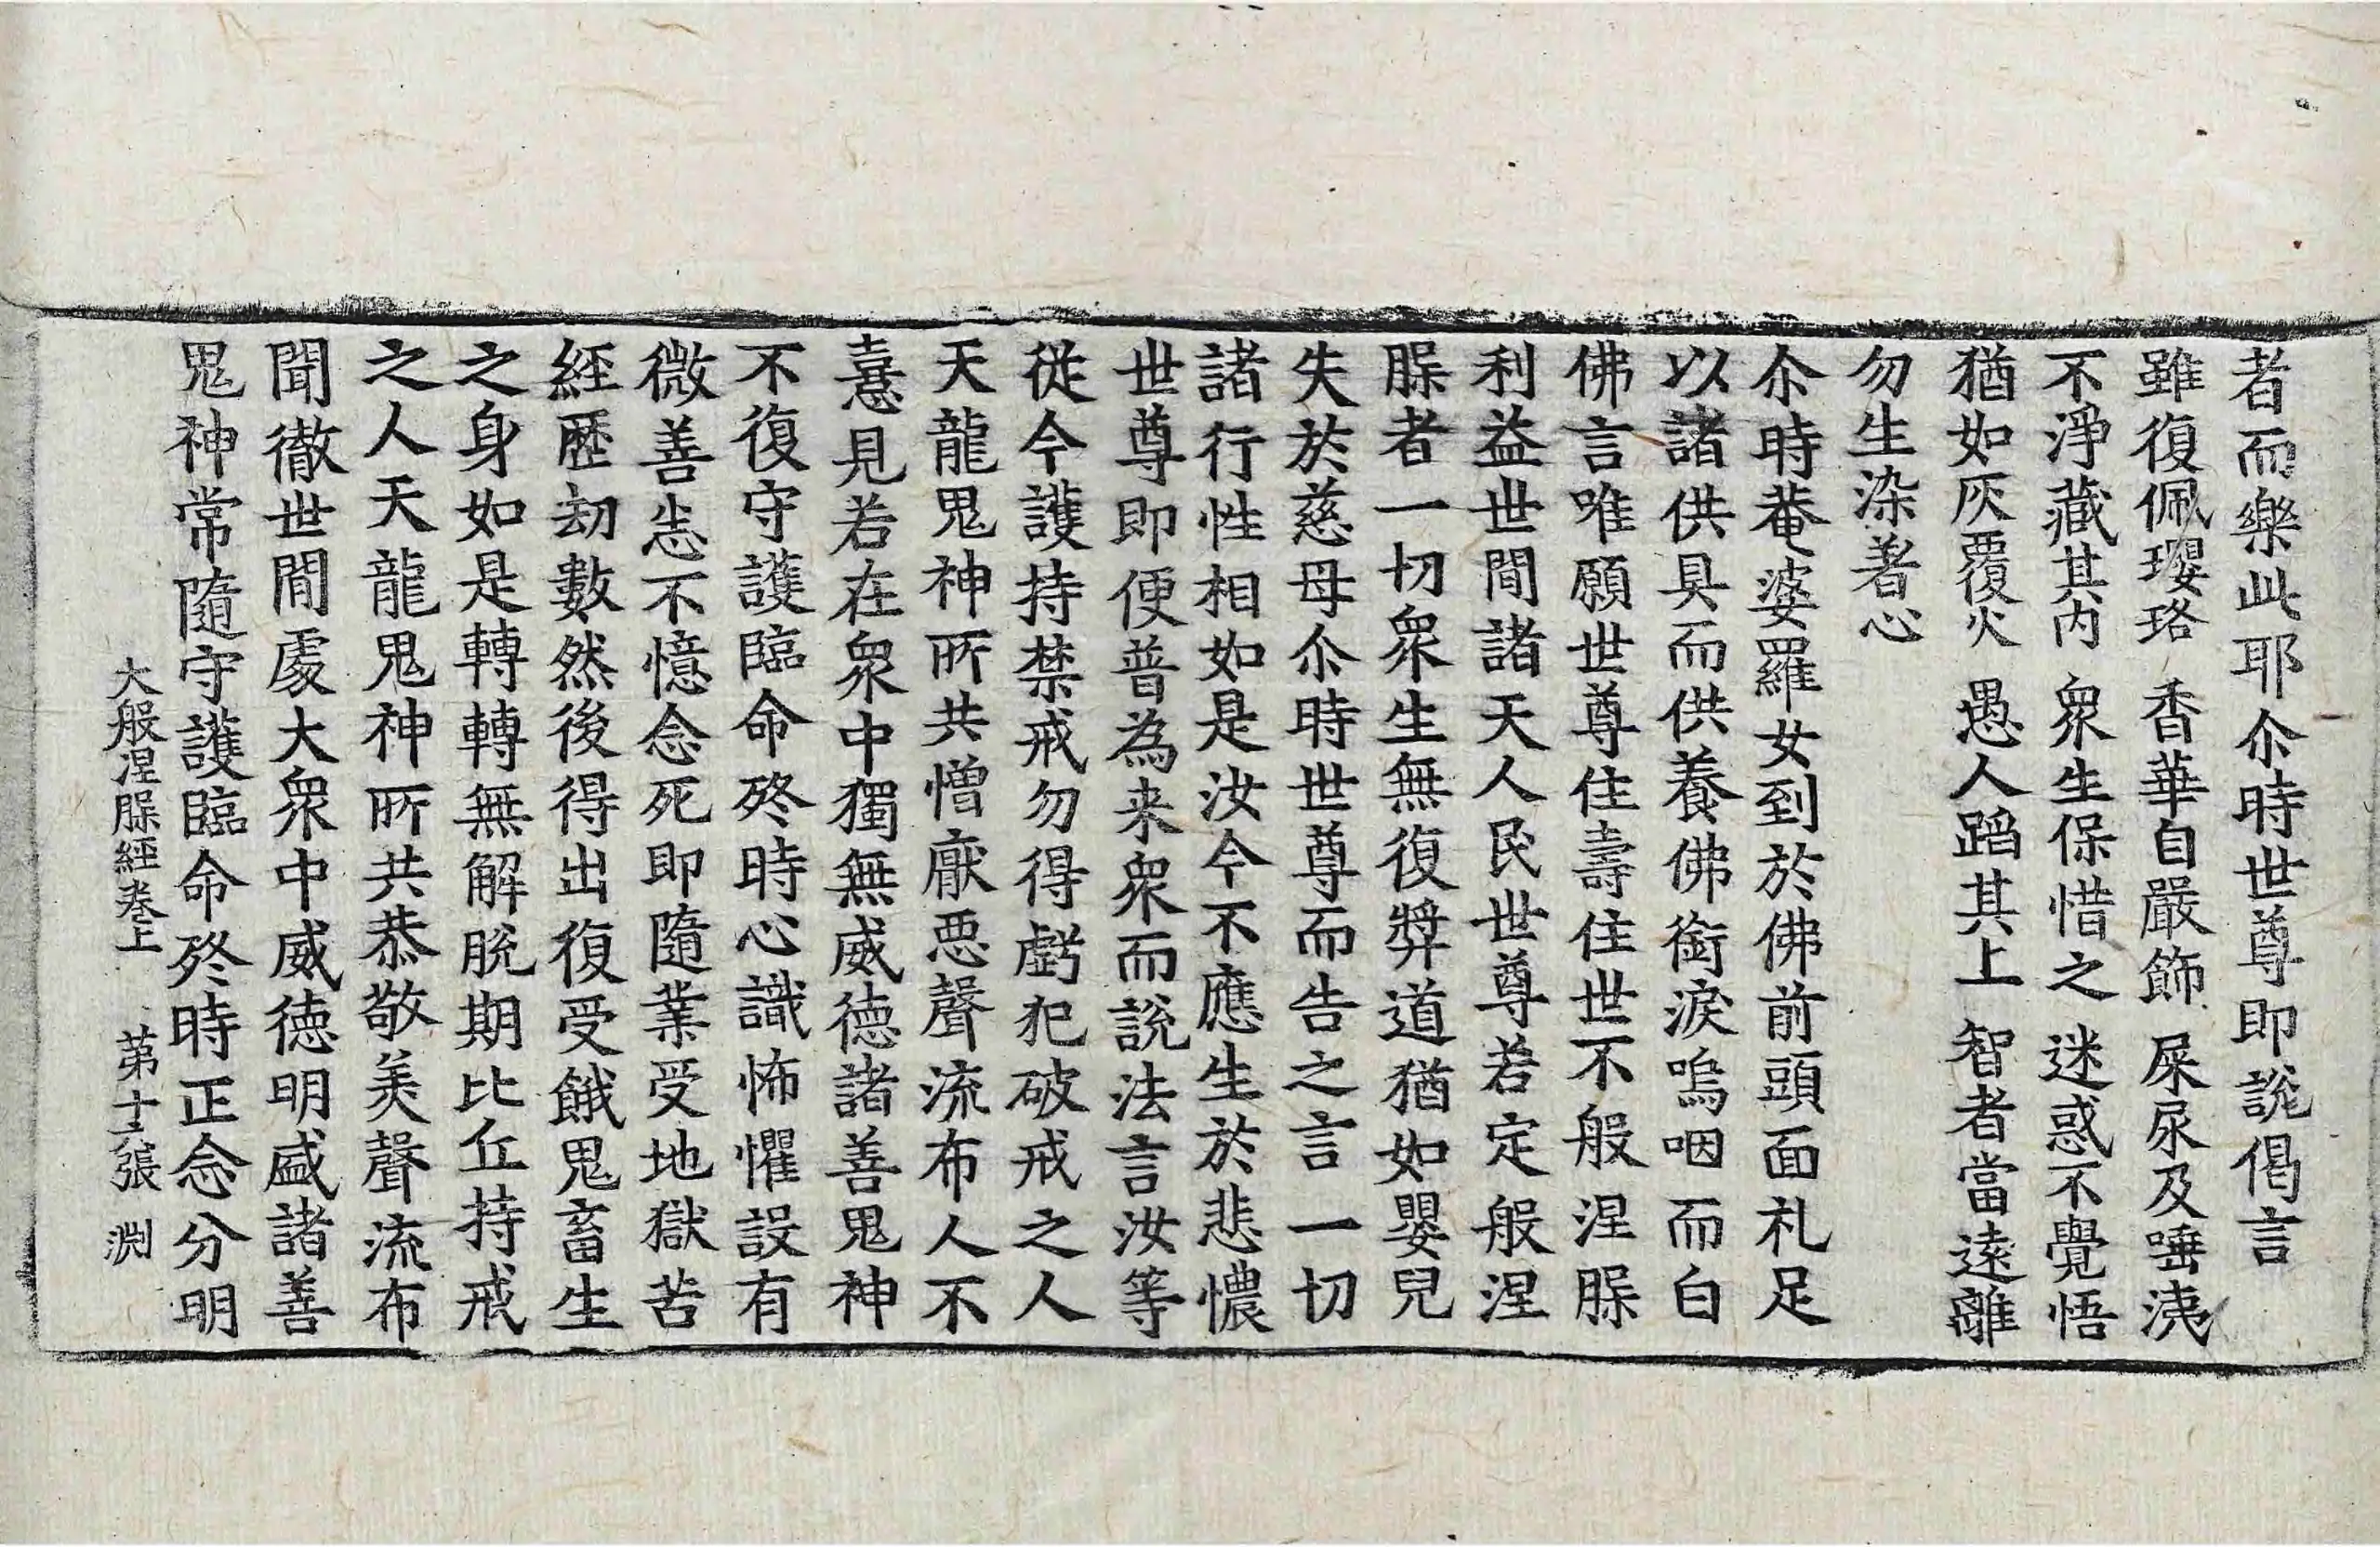 者而樂此耶尒時世尊即說偈言
雖復佩瓔珞 香華自嚴飾 屎尿及唾洟
不淨藏其內 衆生保惜之 迷惑不覺悟
猶如灰覆火 愚人蹈其上 智者當遠離
勿生染著心
尒時菴婆羅女到於佛前頭面礼足
以諸供具而供養佛銜淚嗚咽而白
佛言唯願世尊住壽住世不般涅䏶
利益世間諸天人民世尊若定般涅
䏶者一切衆生無復弉道猶如嬰兒
失於慈母尒時世尊而告之言一切
諸行性相如是汝今不應生於悲憹
世尊即便普為来衆而說法言汝等
従今護持禁戒勿得虧犯破戒之人
天龍鬼神所共憎厭惡聲流布人不
憙見若在衆中獨無威德諸善鬼神
不復守護臨命終時心識怖懼設有
微善悉不憶念死即隨業受地獄苦
經歷劫數然後得出復受餓鬼畜生
之身如是轉轉無解脫期比丘持戒
之人天龍鬼神所共恭敬美聲流布
聞徹世間處大衆中威德明盛諸善
鬼神常隨守護臨命終時正念分明
大般涅䏶經卷上 第十 張 渊